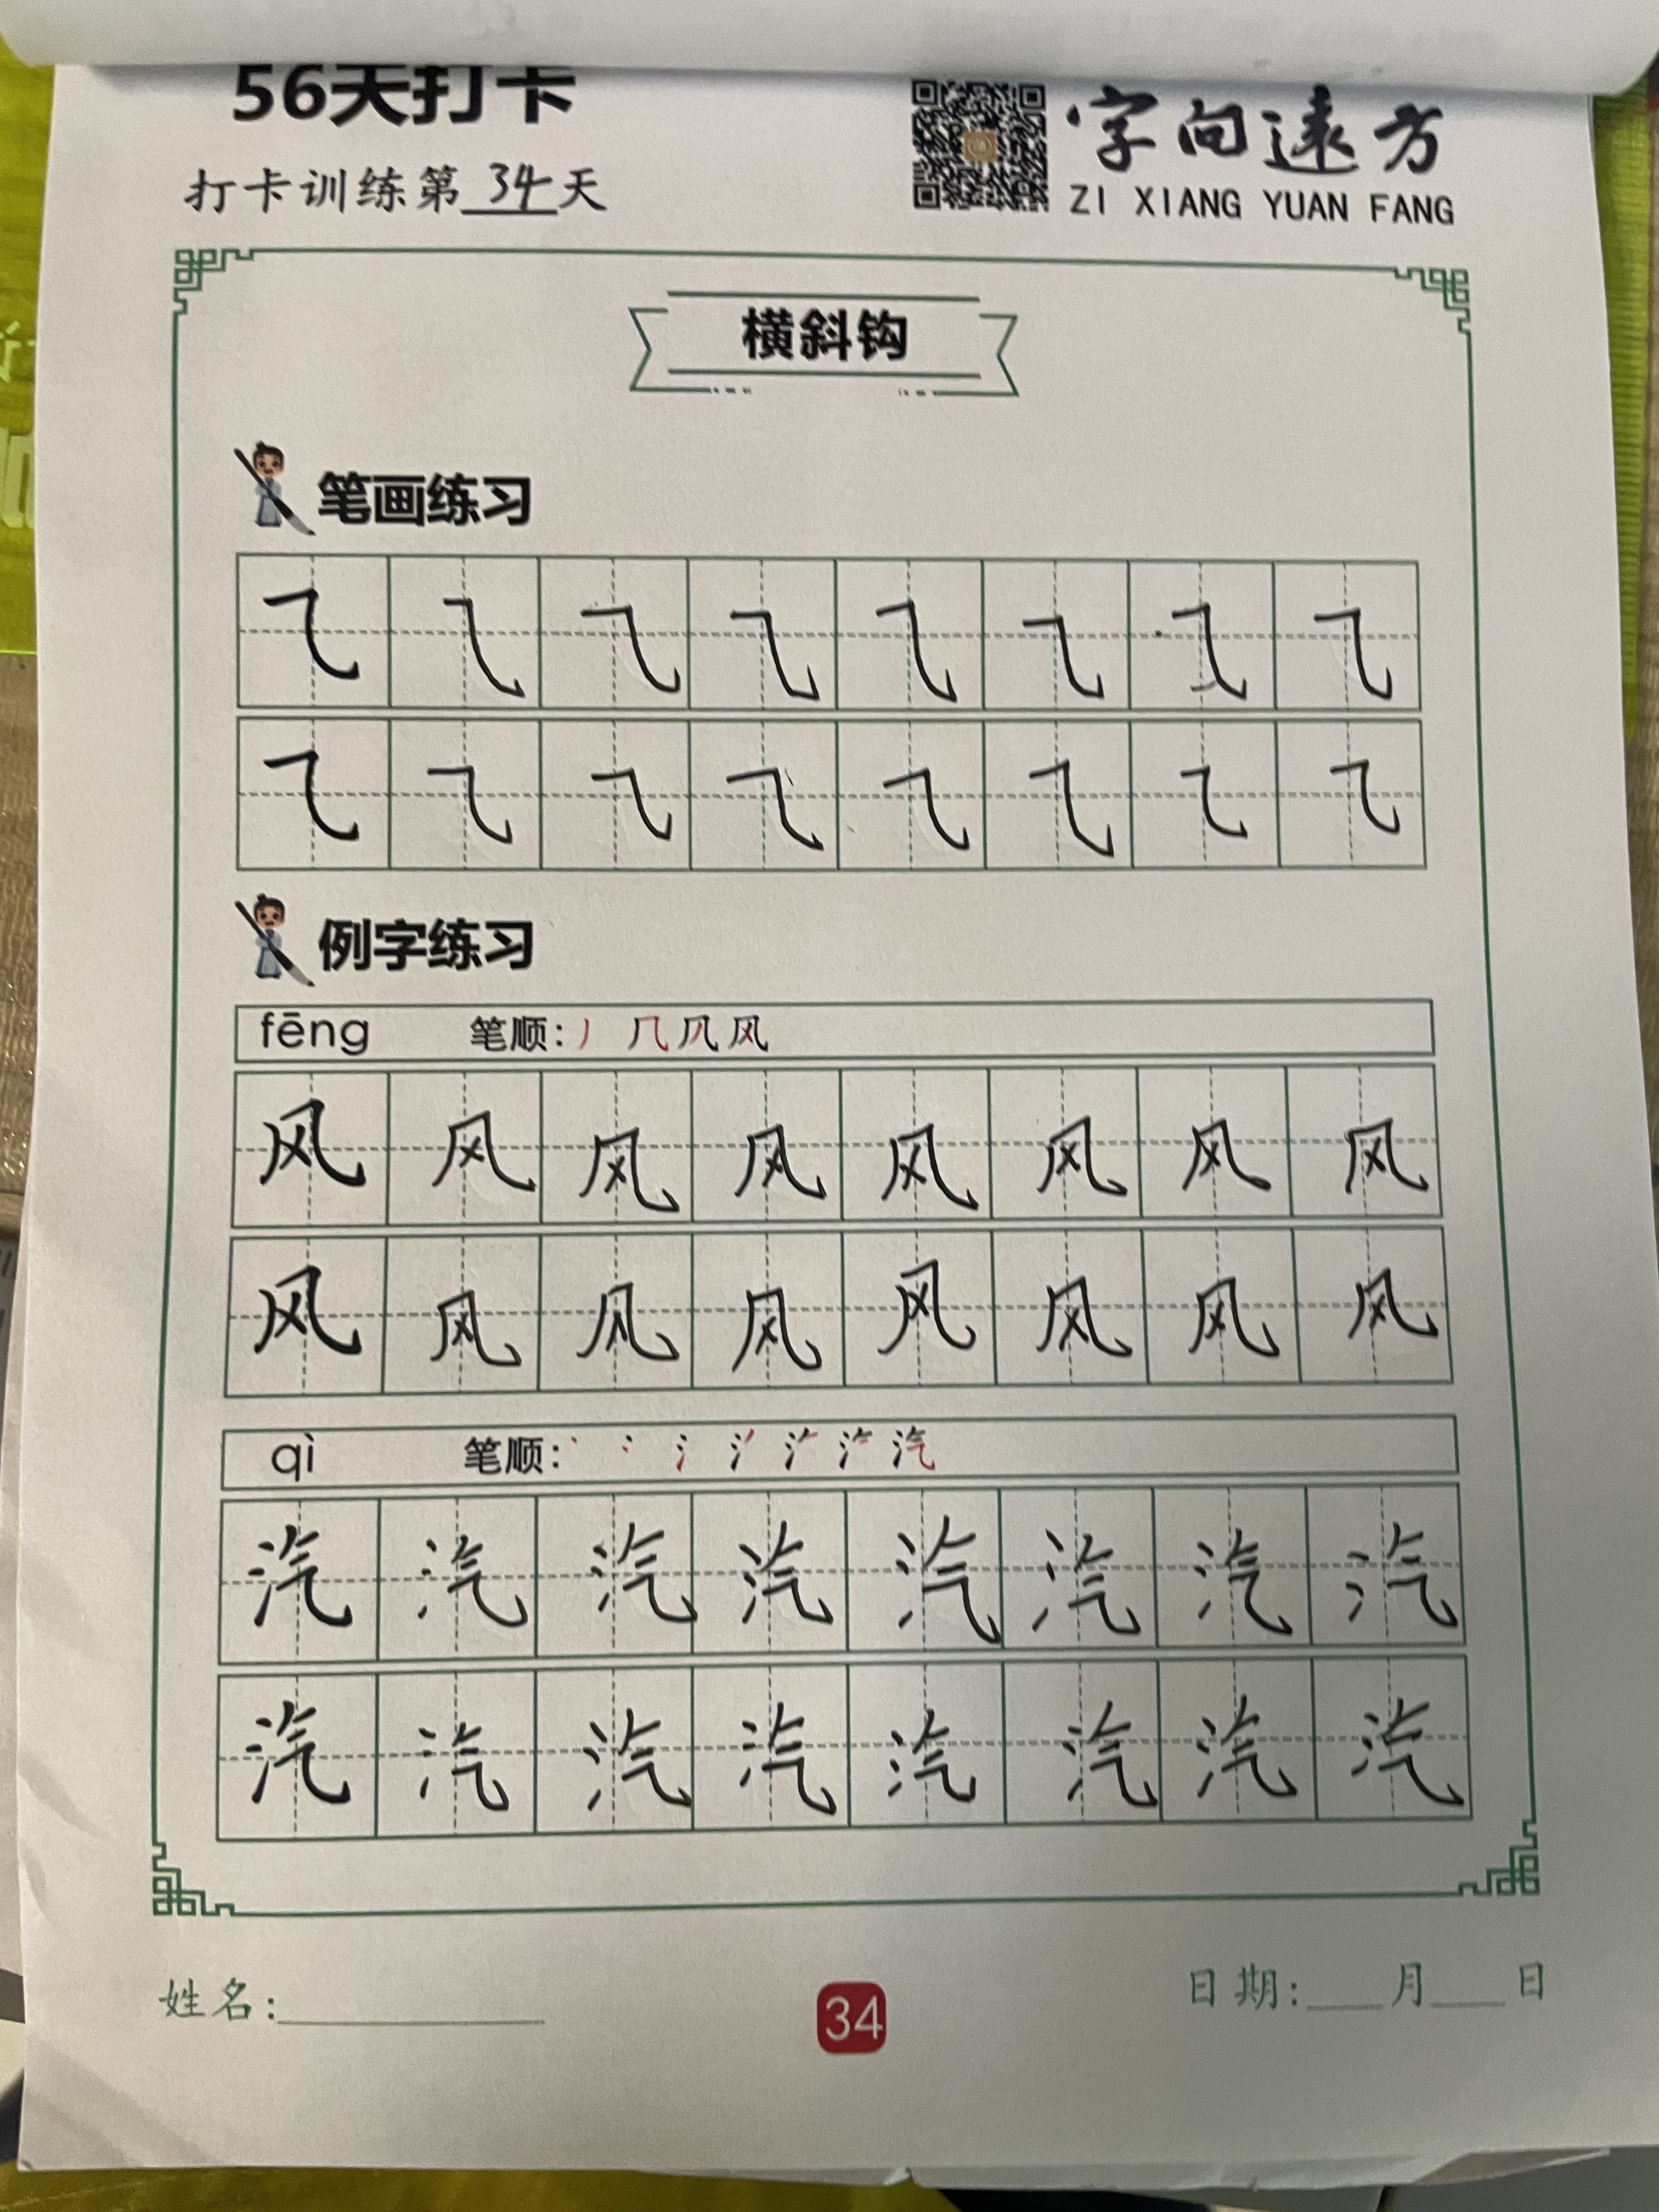 56天打卡
打卡训练第34天
字向远方
ZI XIANG YUAN FANG
横斜钩
笔画练习
⺄ ⺄ ⺄ ⺄ ⺄ ⺄ ⺄ ⺄
⺄ ⺄ ⺄ ⺄ ⺄ ⺄ ⺄ ⺄
例字练习
fēng 笔顺: 丿 几 风
风 风 风 风 风 风 风 风
风 风 风 风 风 风 风 风
qì 笔顺: 丶 氵 汽
汽 汽 汽 汽 汽 汽 汽 汽
汽 汽 汽 汽 汽 汽 汽 汽
姓名: 34 日期: 月 日